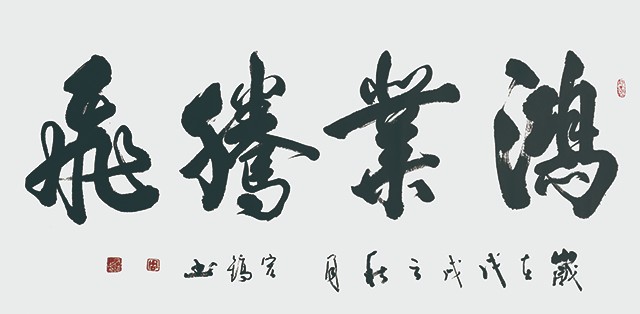 鴻業騰飛
歲在戊戌之秋月宏鎬书